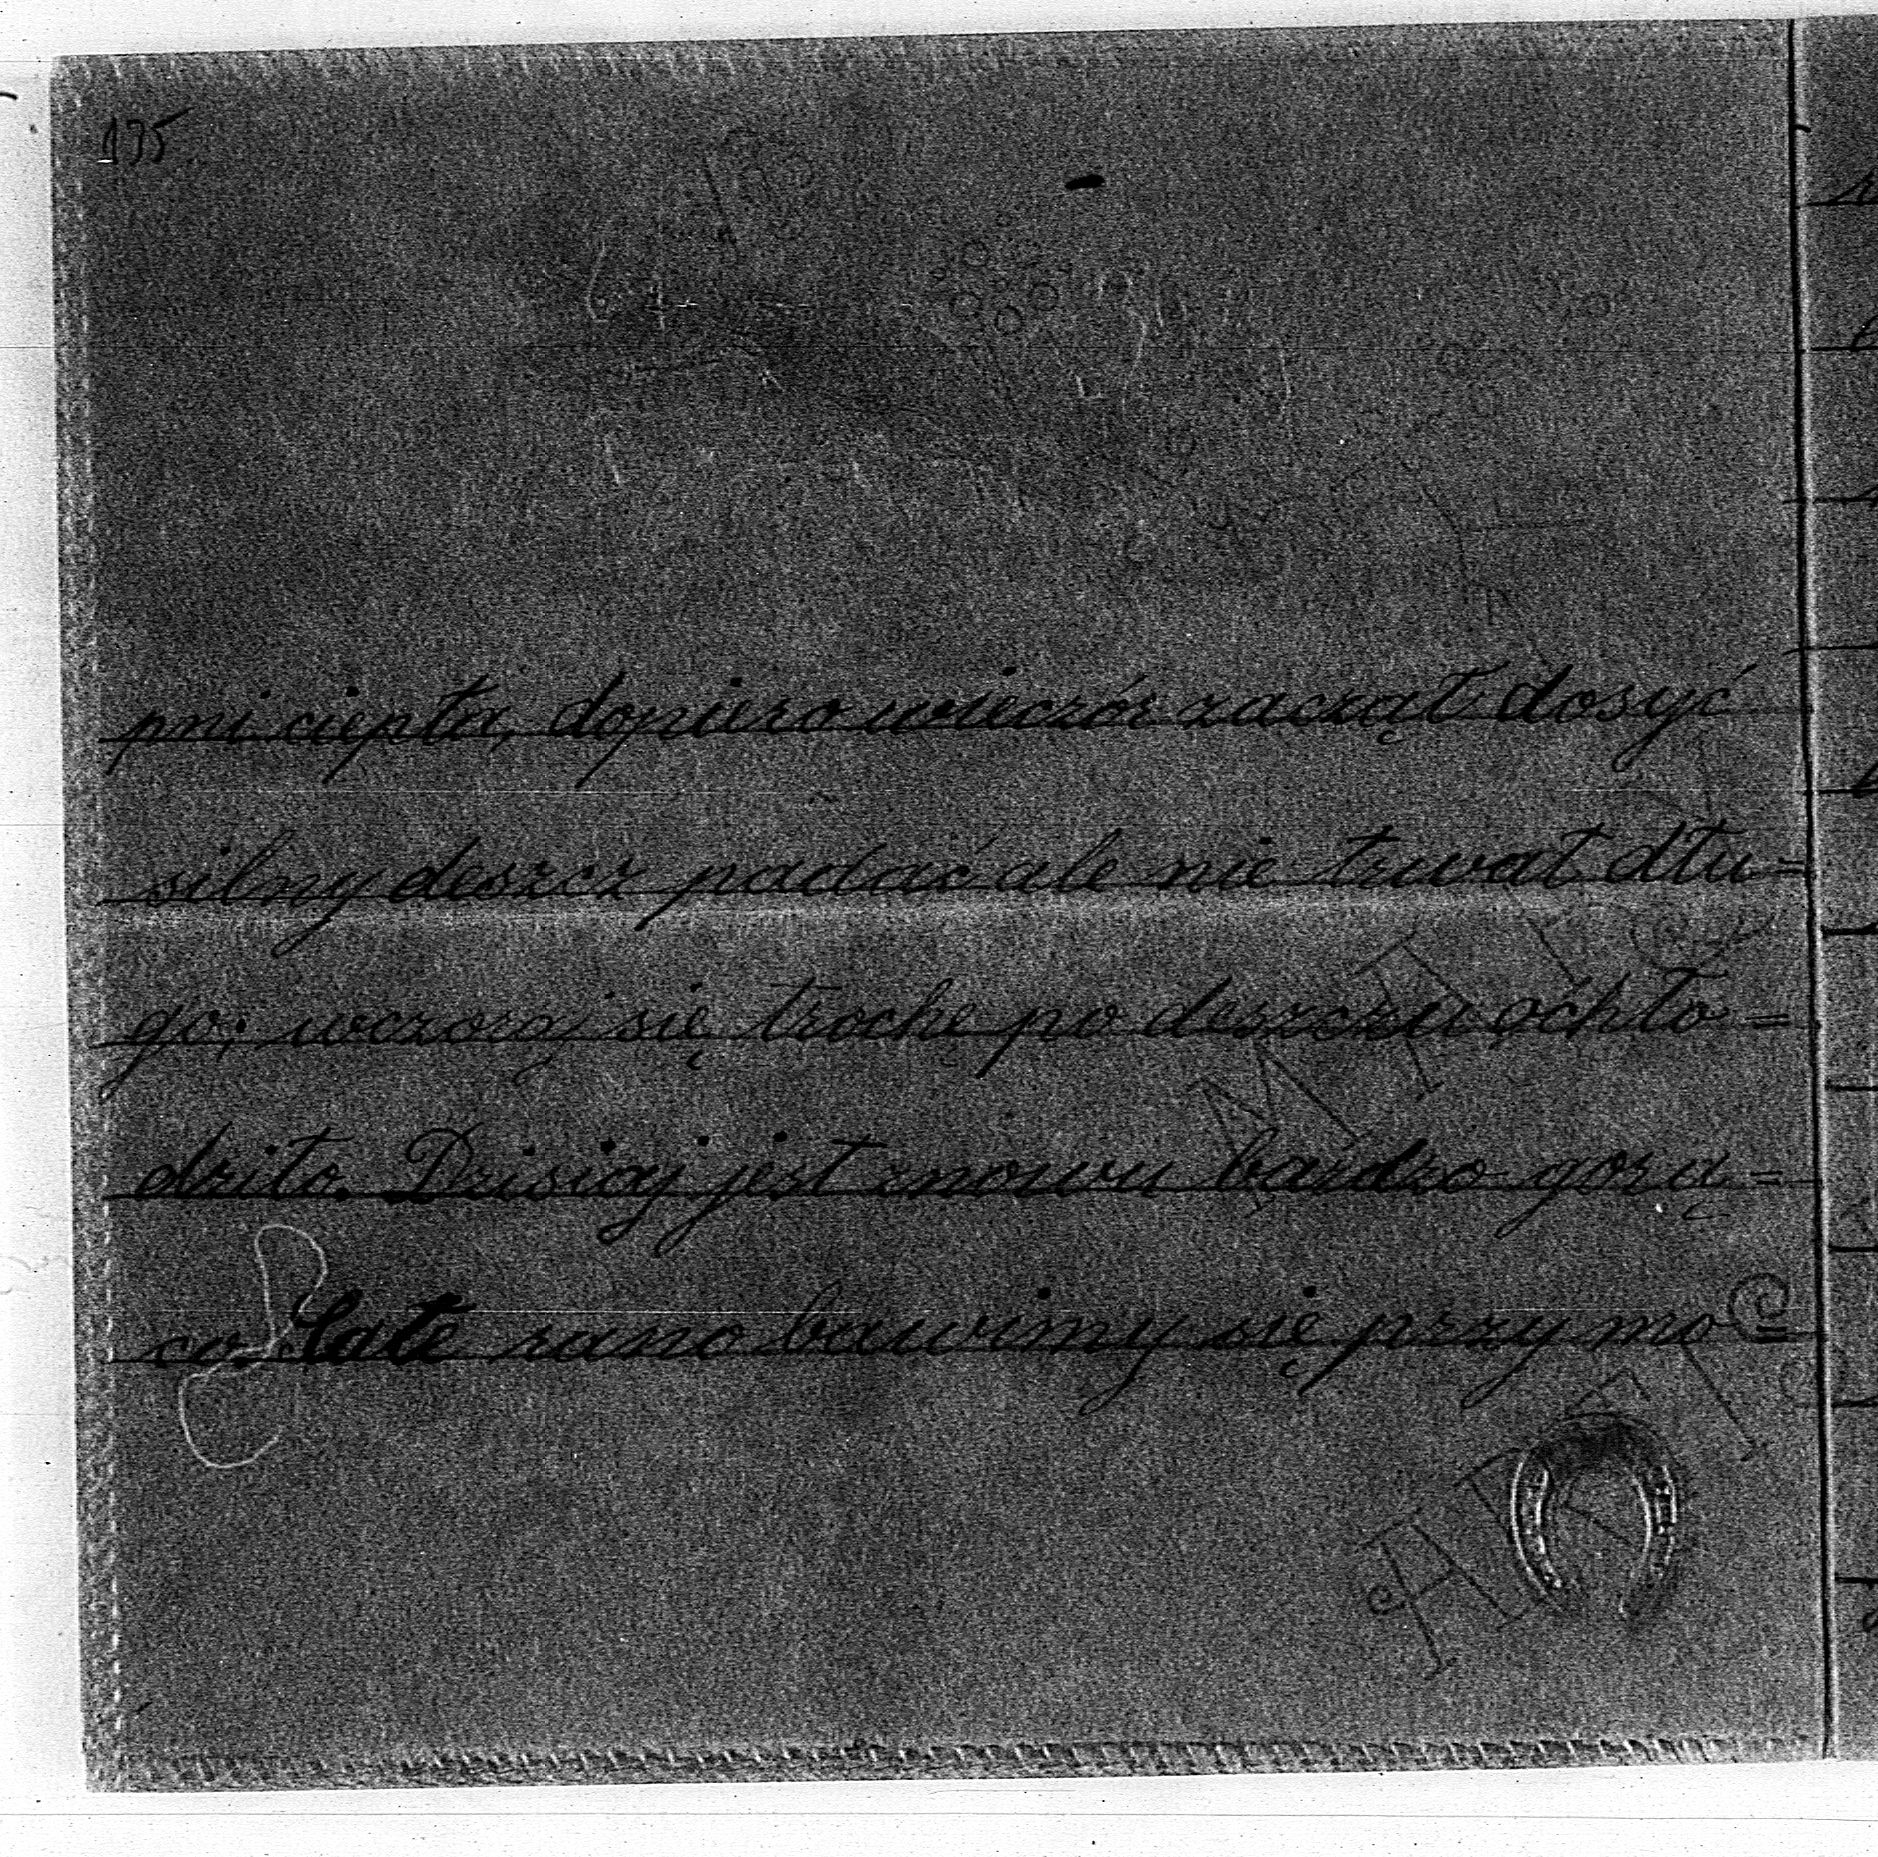 175
pni ciepła, dopiero wieczór zaczął dosyć
silny deszcz padać ale nie trwał dłu=
go; wczoraj się trochę po deszczu ochło=
dziło. Dzisiaj jest znowu bardzo gorą=
co. Całe rano bawimy się przy mo=